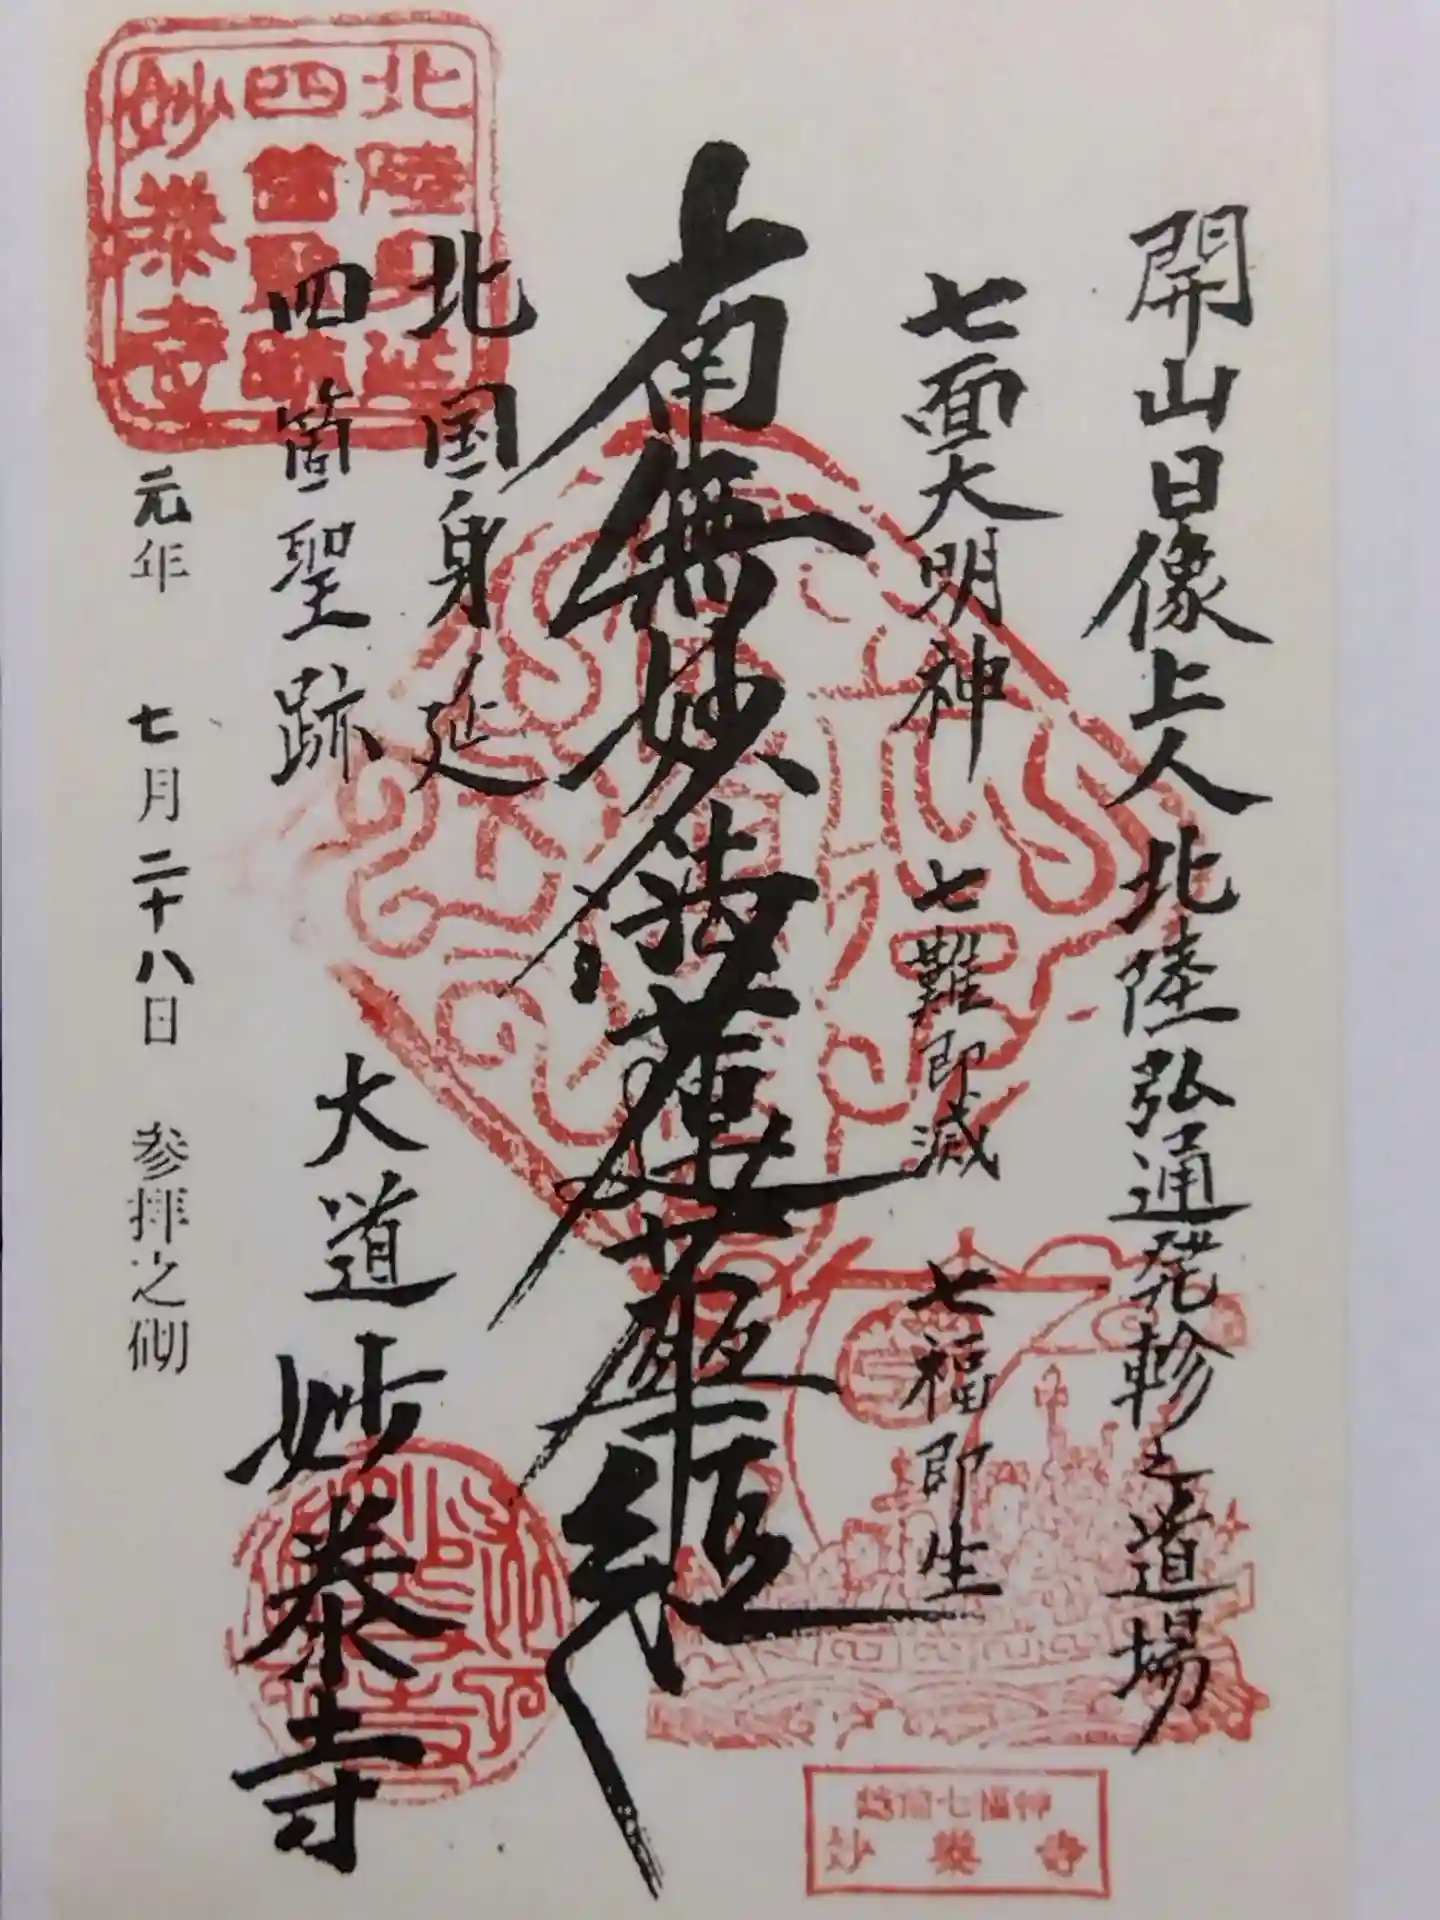 開山日像上人北陸弘通発軫之道場
七面大明神 七難即滅 七福即生
南無妙法蓮華経
北国身延
四箇聖跡
大道 妙泰寺
元年 七月二十八日 参拝之砌
北陸身延
四箇聖蹟
妙泰寺
越前七福神
妙泰寺